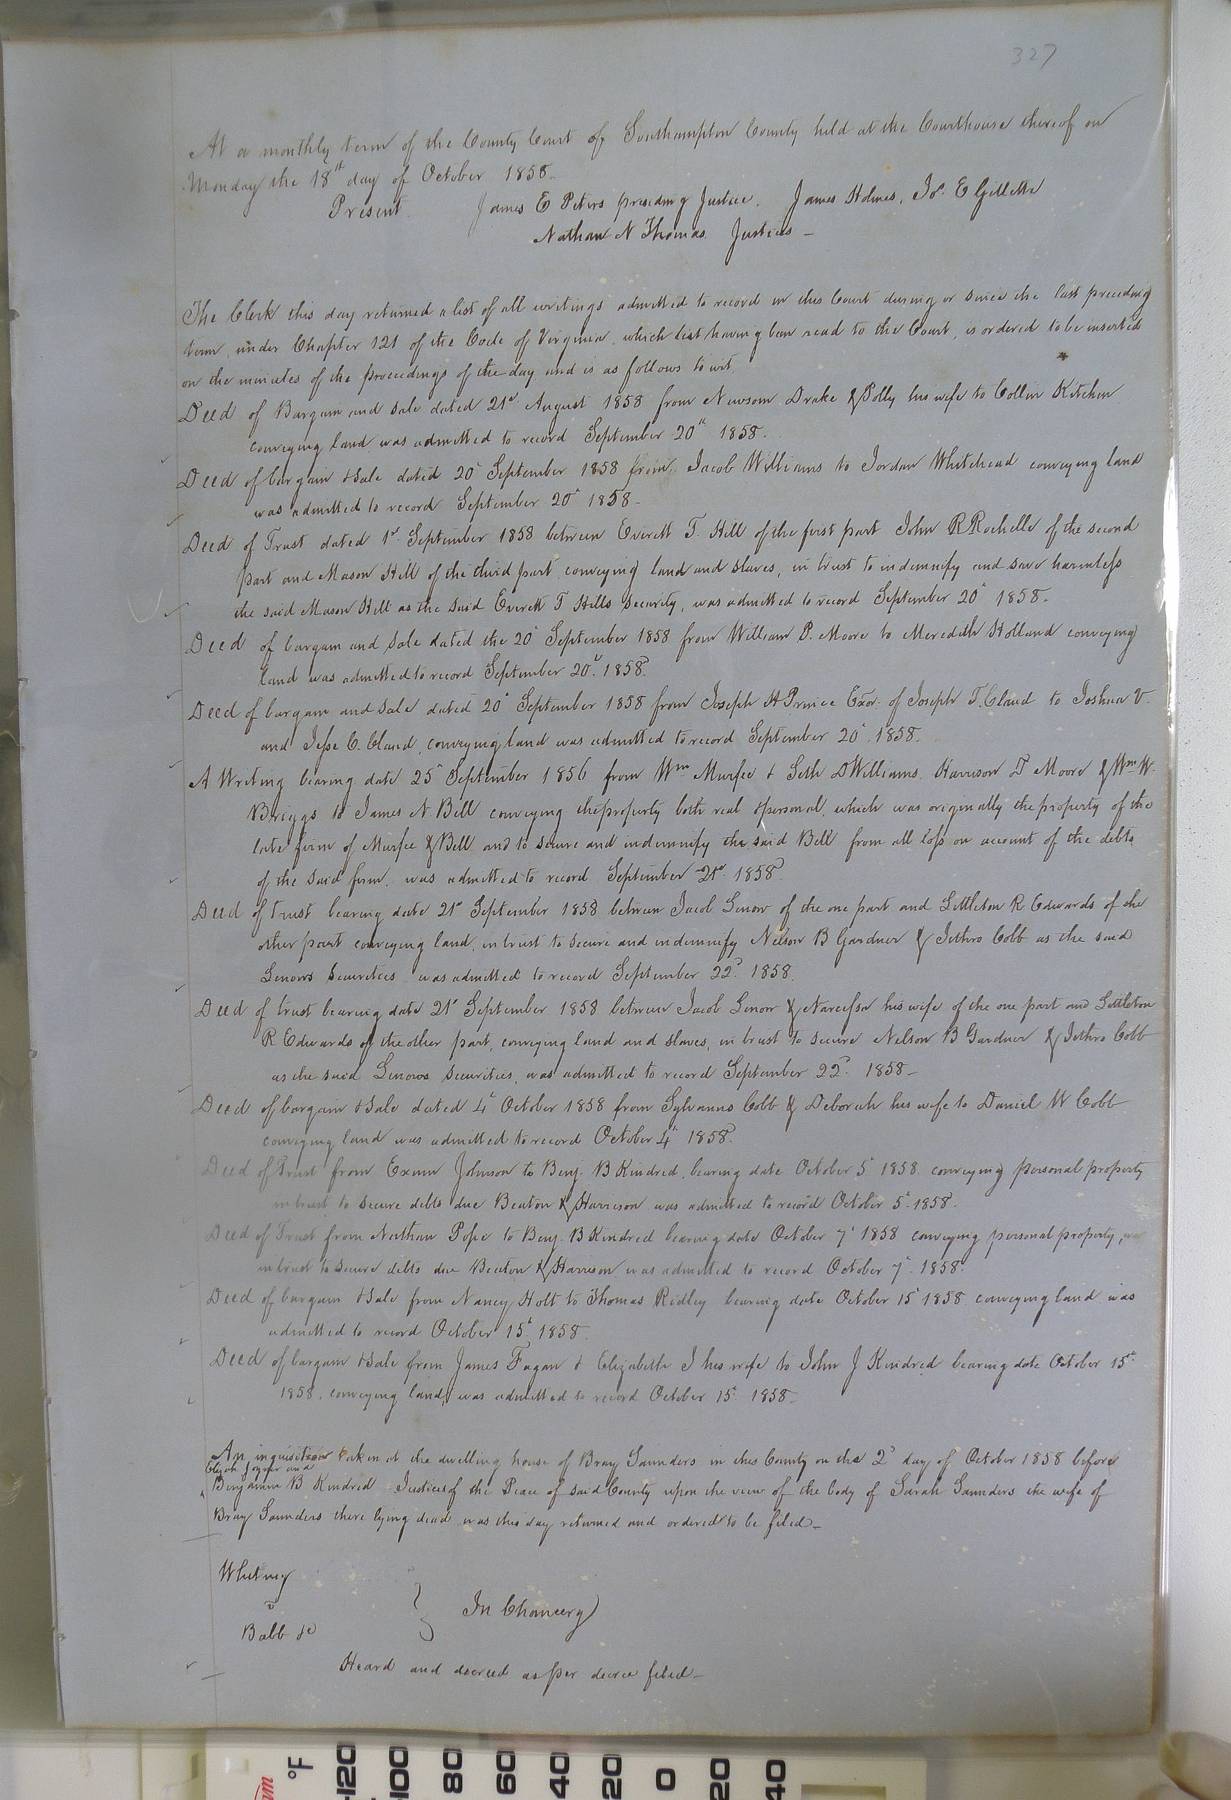 327
At a monthly term of the County Court of Southampton County held at the Courthouse thereof on
Monday the 18th day of October 1858.
Present. James E Peters presiding Justice. James Holmes, E Gillette
Nathan N Thomas Justices –
The Clerk this day returned a list of all writings admitted to record in this Court during or since the last preceding
term, under Chapter 121 of the Code of Virginia, which list having been read to the Court, is ordered to be inserted
on the minutes of the proceedings of the day and is as follows to wit.
Deed of Bargain and Sale dated 21st August 1858 from Newsom Drake & Polly his wife to Collin Kitchen
conveying land was admitted to record September 20th 1858.
Deed of bargain & Sale dated 20th September 1858 from Jacob Williams to Jordan Whitehead conveying land
was admitted to record September 20th 1858–
Deed of Trust dated 1st September 1858 between Everett T. Hill of the first part John R Rochelle of the second
part and Mason Hill of the third part conveying land and slaves, in trust to indemnify and save harmless
the said Mason Hill as the said Everett T Hills security, was admitted to record September 20th 1858.
Deed of bargain and Sale dated the 20th September 1858 from William P. Moore to Meredith Holland conveying
land was admitted to record September 20th 1858.
Deed of bargain and Sale dated 20th September 1858 from Joseph H Prince Exor. of Joseph T. Claud to Joshua V.
and Jesse C. Claud conveying land was admitted to record September 20th 1858.
A Writing bearing date 25th September 1856 from Wm Murfee & Seth D Williams Harrison D Moore & Wm W.
Briggs to James N Bell conveying the property both real & personal, which was originally the property of the
late firm of Murfee & Bell and to secure and indemnify the said Bell from all loss on account of the debts
of the said firm, was admitted to record September 21st 1858.
Deed of trust bearing date 21st September 1858 between Jacob Lenow of the one part and Littleton R Edwards of the
other part conveying land in trust to secure and indemnify Nelson B Gardner & Jethro Cobb as the said
Lenows Securities was admitted to record September 22d. 1858.
Deed of trust bearing date 21st September 1858 between Jacob Lenow & Narcissa his wife of the one part and Littleton
R Edwards of the other part, conveying land and slaves, in trust to secure Nelson B Gardner & Jethro Cobb
as the said Lenows Securities, was admitted to record September 22d. 1858–
Deed of bargain & Sale dated 4th October 1858 from Sylvanus Cobb & Deborah his wife to Daniel W Cobb
conveying land was admitted to record October 4th 1858.
Deed of Trust from Exum Johnson to Benj. B Kindred, bearing date October 5th 1858 conveying personal property
in trust to secure debts due Beaton & Harrison was admitted to record October 5th 1858.
Deed of Trust from Nathan Pope to Benj. B Kindred bearing date October 7th 1858 conveying personal property,
in trust to secure debts due Beaton & Harrison was admitted to record October 7th 1858.
Deed of bargain & Sale from Nancy Holt to Thomas Ridley bearing date October 15th 1858 conveying land was
admitted to record October 15th 1858.
Deed of bargain & Sale from James Fagan & Elizabeth J his wife to John J Kindred bearing date October 15th
1858, conveying land, was admitted to record October 15th 1858–
An inquisition taken at the dwelling house of Bray Saunders in this County on the 2d day of October 1858 before
Elijah Joyner and
Benjamin B Kindred Justices of the Peace of said County upon the view of the body of Sarah Saunders the wife of
Bray Saunders there lying dead was this day returned and ordered to be filed–
Whitney
v
Babb &c
} In Chancery
Heard and decreed as per decree filed–
°F
120 100 80 60 40 20 0 20 40